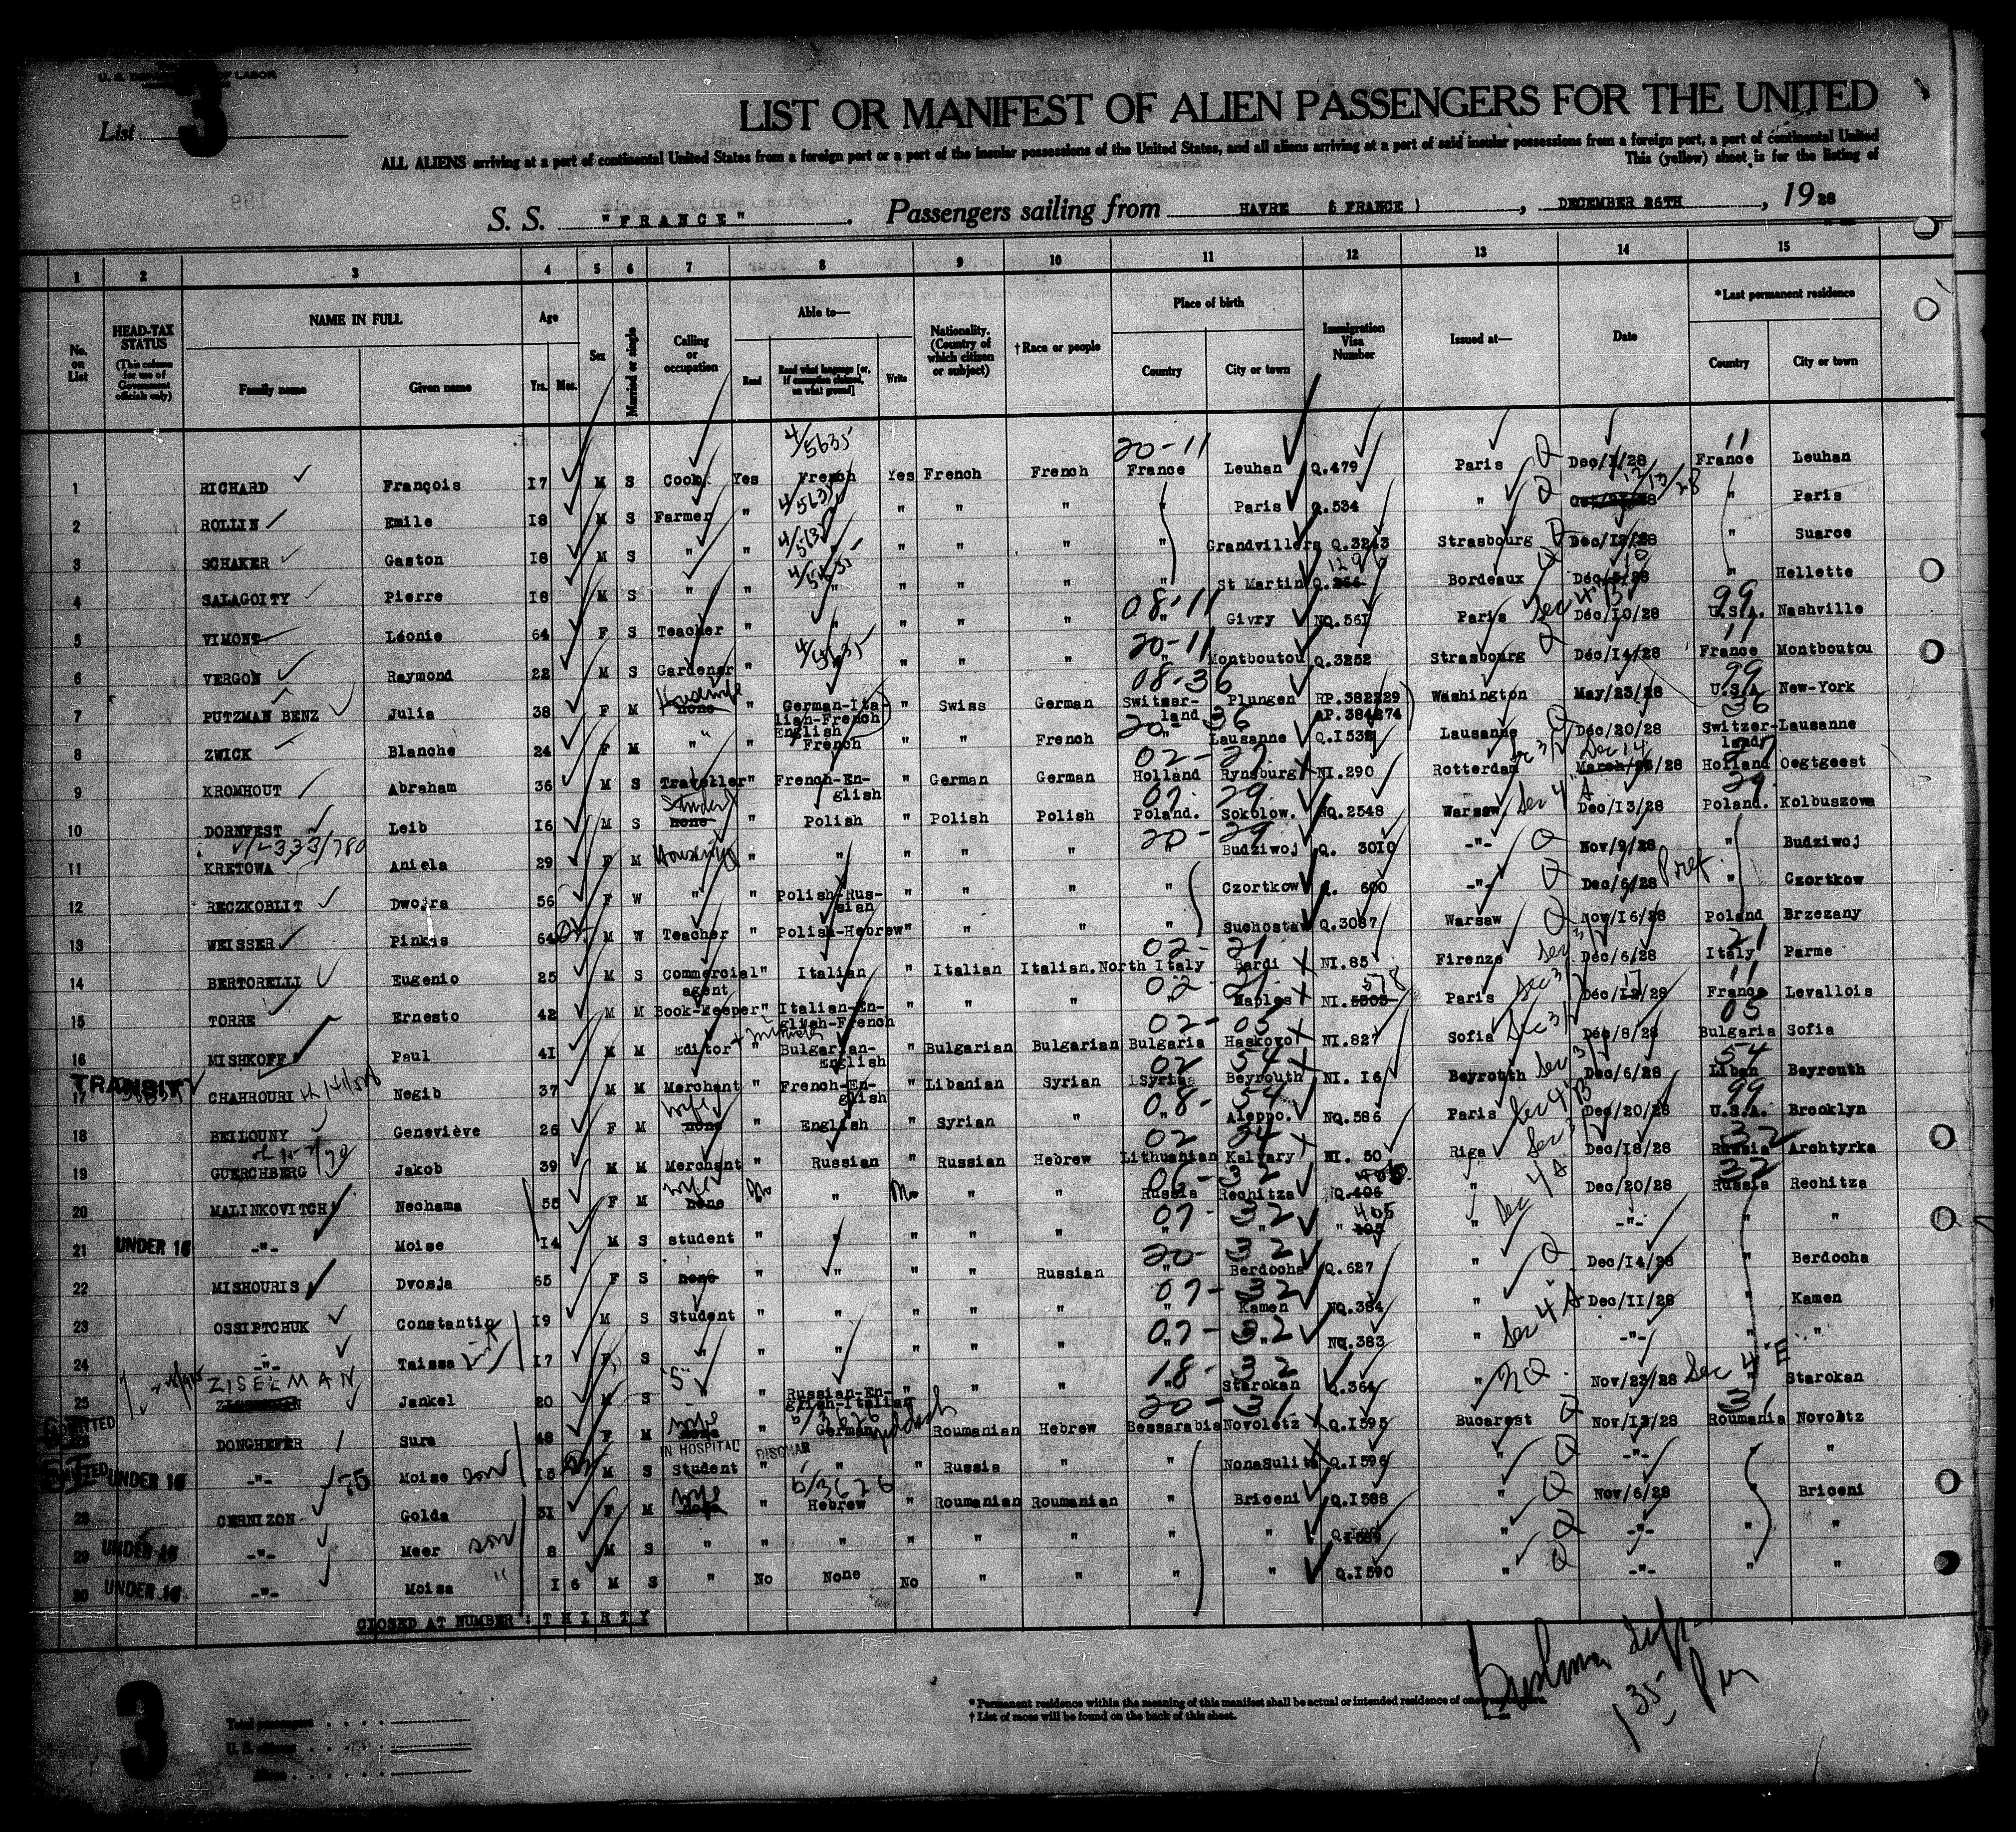 U. S. DEPARTMENT OF LABOR
List 3
LIST OR MANIFEST OF ALIEN PASSENGERS FOR THE UNITED
ALL ALIENS arriving at a port of continental United States from a foreign port or a port of the insular possessions of the United States, and all aliens arriving at a port of said insular possessions from a foreign port, a port of continental United
This (yellow) sheet is for the listing of
S. S. "FRANCE". Passengers sailing from HAVRE ( FRANCE ), DECEMBER 26TH, 1928
1 2 3 4 5 6 7 8 9 10 11 12 13 14 15
No. on List
HEAD-TAX STATUS (This column for use of Government officials only)
NAME IN FULL Family name Given name
Age Yrs. Mos.
Sex
Married or single
Calling or occupation
Able to— Read Read what language [or, if exemption claimed, on what ground] Write
Nationality. (Country of which citizen or subject)
†Race or people
Place of birth Country City or town
Immigration Visa Number
Issued at—
Date
*Last permanent residence Country City or town
1 RICHARD François 17 M S Cook Yes French 4/5635 Yes French French 20-11 France Leuhan Q.479 Paris Q Dec/ /28 11 France Leuhan
2 ROLLIN Emile 18 M S Farmer " 4/5635 " " " " " Paris Q.534 " Q 12/13/28 " Paris
3 SCHAKER Gaston 18 M S " " " " " " " Grandvillers Q.3243 Strasbourg Q Dec/12/28 " Suarce
4 SALAGOITY Pierre 18 M S " " 4/5635 " " " " " St Martin Q. 1296 Bordeaux Q Déc/ /28 " Hellette
5 VIMONT Léonie 64 F S Teacher " " " " " 08-11 " Givry NQ.561 Paris Sec 4 B Déc/10/28 99 U.S.A. Nashville
6 VERGON Raymond 22 M S Gardener " 4/5635 " " " 20-11 " Montboutou Q.3252 Strasbourg Q Déc/14/28 11 France Montboutou
7 PUTZMAN BENZ Julia 38 F M none Housewife " German-Italian-French English " Swiss German 08-36 Switzerland Plungen RP.382229 AP.384274 Washington May/23/28 99 U.S.A. New-York
8 ZWICK Blanche 24 F M " " French " " French 20 36 " Lausanne Q.1532 Lausanne Q Déc/20/28 36 Switzerland Lausanne
9 KROMHOUT Abraham 36 M S Traveller " French-English " German German 02-27 Holland Rynsburg NI.290 Rotterdam Sec 3/2 March/26/28 Dec 14 Holland Oegtgeest
10 DORNFEST Leib 16 M S none Student " Polish " Polish Polish 07 29 Poland. Sokolow. NQ.2548 Warsaw Sec 4 A Dec/13/28 29 Poland. Kolbuszowa
11 KRETOWA Aniela 29 F M Housewife " " " " " 20-29 " Budziwoj Q. 3010 -"- Q Nov/9/28 " Budziwoj
12 RECZKOBLIT Dwojra 56 F W " " Polish-Russian " " " " Czortkow 600 -"- Q Dec/6/28 Pref. " Czortkow
13 WEISSER Pinkas 64 M W Teacher " Polish-Hebrew " " " " Suchostaw Q.3087 Warsaw Q Nov/16/28 Poland Brzezany
14 BERTORELLI Eugenio 25 M S Commercial agent " Italian " Italian Italian,North 02-21 Italy Bardi NI.85 Firenze Sec 3/2 Dec/6/28 21 Italy Parme
15 TORRE Ernesto 42 M M Book-keeper " Italian-English-French " " " 02-21 " Naples NI.5505 578 Paris Sec 3/2 Déc/ /28 17 11 France Levallois
16 MISHKOFF Paul 41 M M Editor " Bulgarian-English " Bulgarian Bulgarian 02-05 Bulgaria Haskovo NI.827 Sofia Sec 3/2 Dec/8/28 05 Bulgaria Sofia
TRANSIT
17 CHAHROURI Negib 37 M M Merchant " French-English " Libanian Syrian 02 54 Syria Beyrouth NI. 16 Beyrouth Sec 3/2 Dec/6/28 54 Liban Beyrouth
18 BELLOUNY Geneviève 26 F M none wife " English " Syrian " 08-54 " Aleppo. NQ.586 Paris Sec 4 B Dec/20/28 99 U.S.A. Brooklyn
19 GUERCHBERG Jakob 39 M M Merchant " Russian " Russian Hebrew 02 24 Lithuanian Kalvary NI. 50 Riga Sec 3/2 Dec/18/28 32 Russia Archtyrka
20 MALINKOVITCH Nechama 55 F M none wife No " No " " 06-32 Russia Rechitza NQ.406 " Sec 4 A Dec/20/28 32 Russia Rechitza
21 UNDER 16 -"- Moise 14 M S student " " " " " 07-32 " " " 405 " -"- " "
22 MISHOURIS Dvosja 65 F S none " " " " Russian 20-32 " Berdocha Q.627 " Q Dec/14/28 " Berdocha
23 OSSIPTCHUK Constantin 19 M S Student " " " " " 07-32 " Kamen NQ.384 " Sec 4 A Dec/11/28 " Kamen
24 -"- Taissa 17 F S " " " " " " 07-32 " " NQ.383 " -"- " "
25 ZISELMAN Jankel 20 M S " " Russian-English-Italian " " " 18-32 " Starokan Q.364 " Q Nov/23/28 Sec 4 E " Starokan
ADMITTED DONGHEFER Sura 48 F M none wife " German Yiddish Roumanian Hebrew 20-31 Bessarabia Novoletz Q.1595 Bucarest Q Nov/13/28 31 Roumania Novoltz
IN HOSPITAL DISCHAR
ADMITTED UNDER 16 -"- Moise son 15 M S Student " " " Russia " " NonaSulita Q.1596 " Q -"- "
28 CERNIZON Golda 31 F M none wife " Hebrew 6/3626 " Roumanian Roumanian " Briceni Q.1588 " Q Nov/6/28 Briceni
29 UNDER 16 -"- Meer son 8 M S " " " " " " " " Q.1589 " Q -"- " "
30 UNDER 16 -"- Moisa " 1 6 M S " No None No " " " " Q.1590 " Q -"- " "
CLOSED AT NUMBER : THIRTY
3
Total passengers
U. S. citizens
Aliens
* Permanent residence within the meaning of this manifest shall be actual or intended residence of one year or more.
† List of races will be found on the back of this sheet.
135